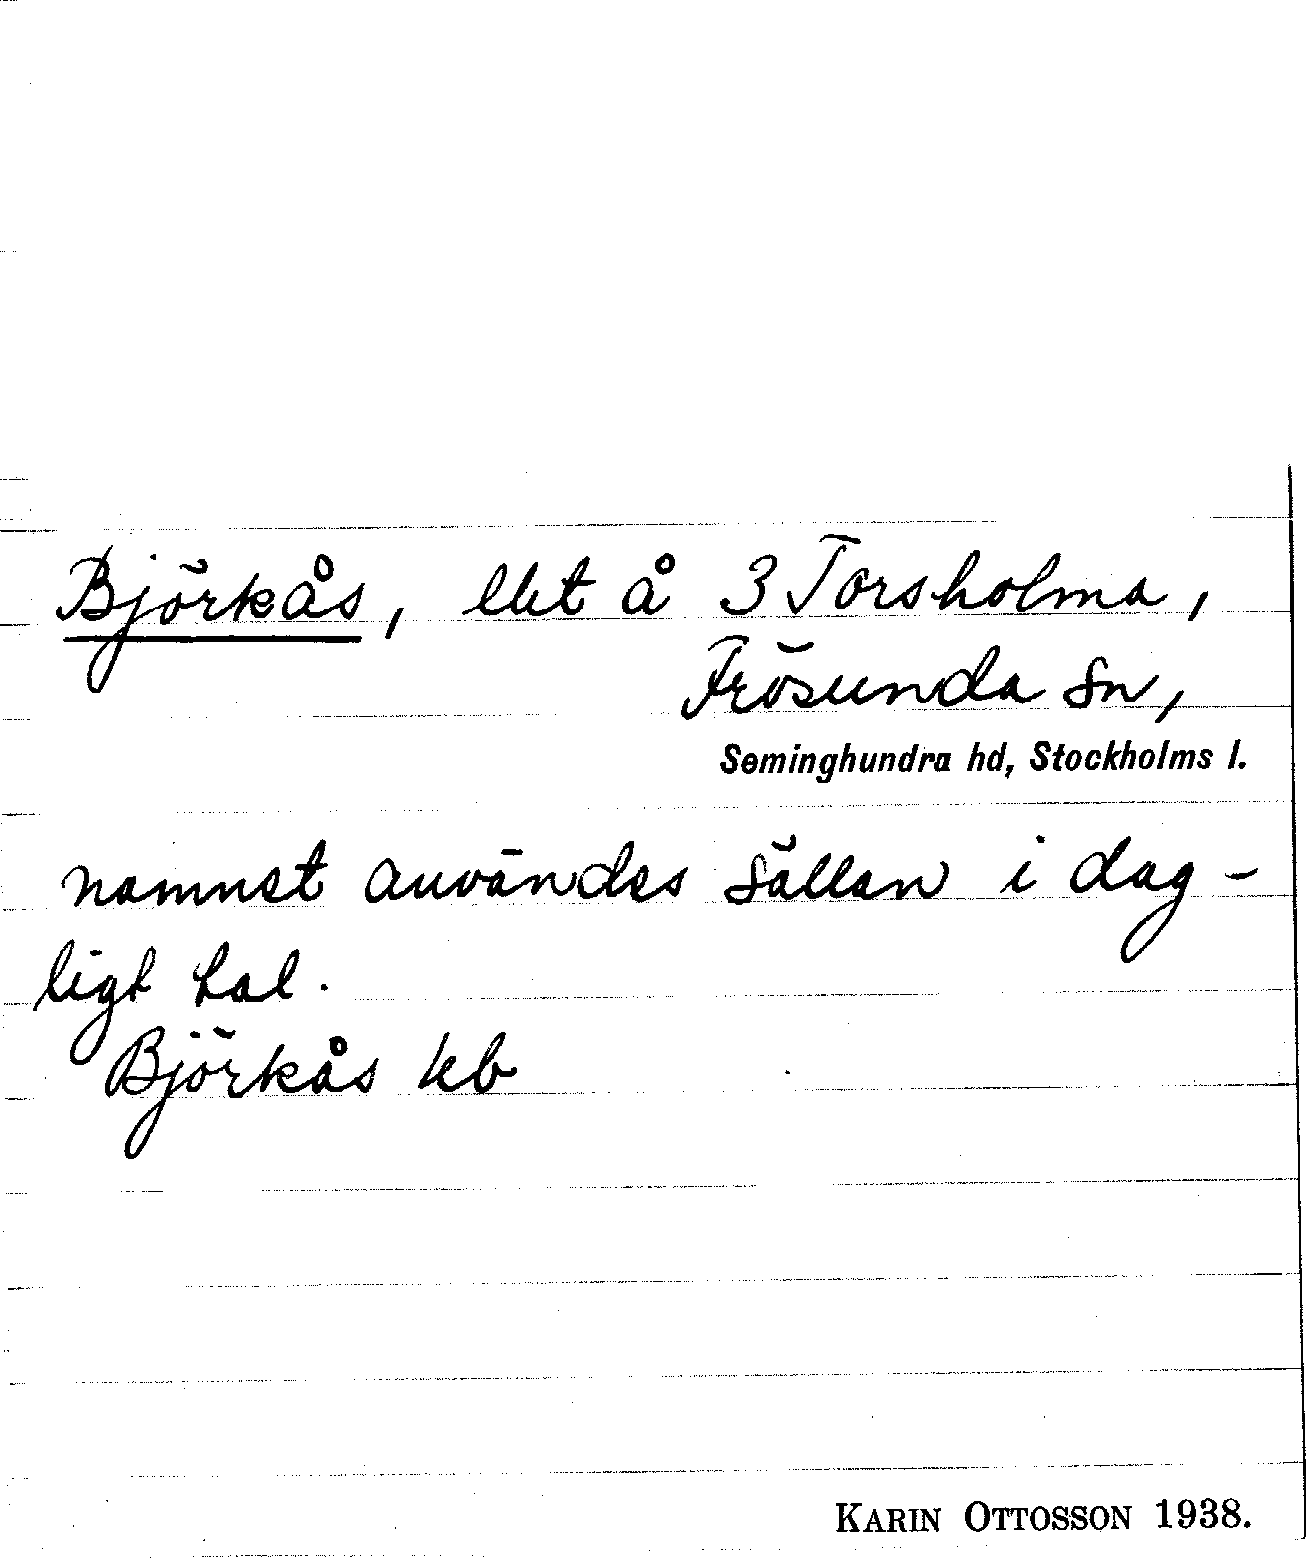 Björkås, lht å 3 Torsholma,
Frösunda sn,
Seminghundra hd, Stockholms l.
namnet användes sällan i dag-
ligt tal.
Björkås kb
KARIN OTTOSSON 1938.